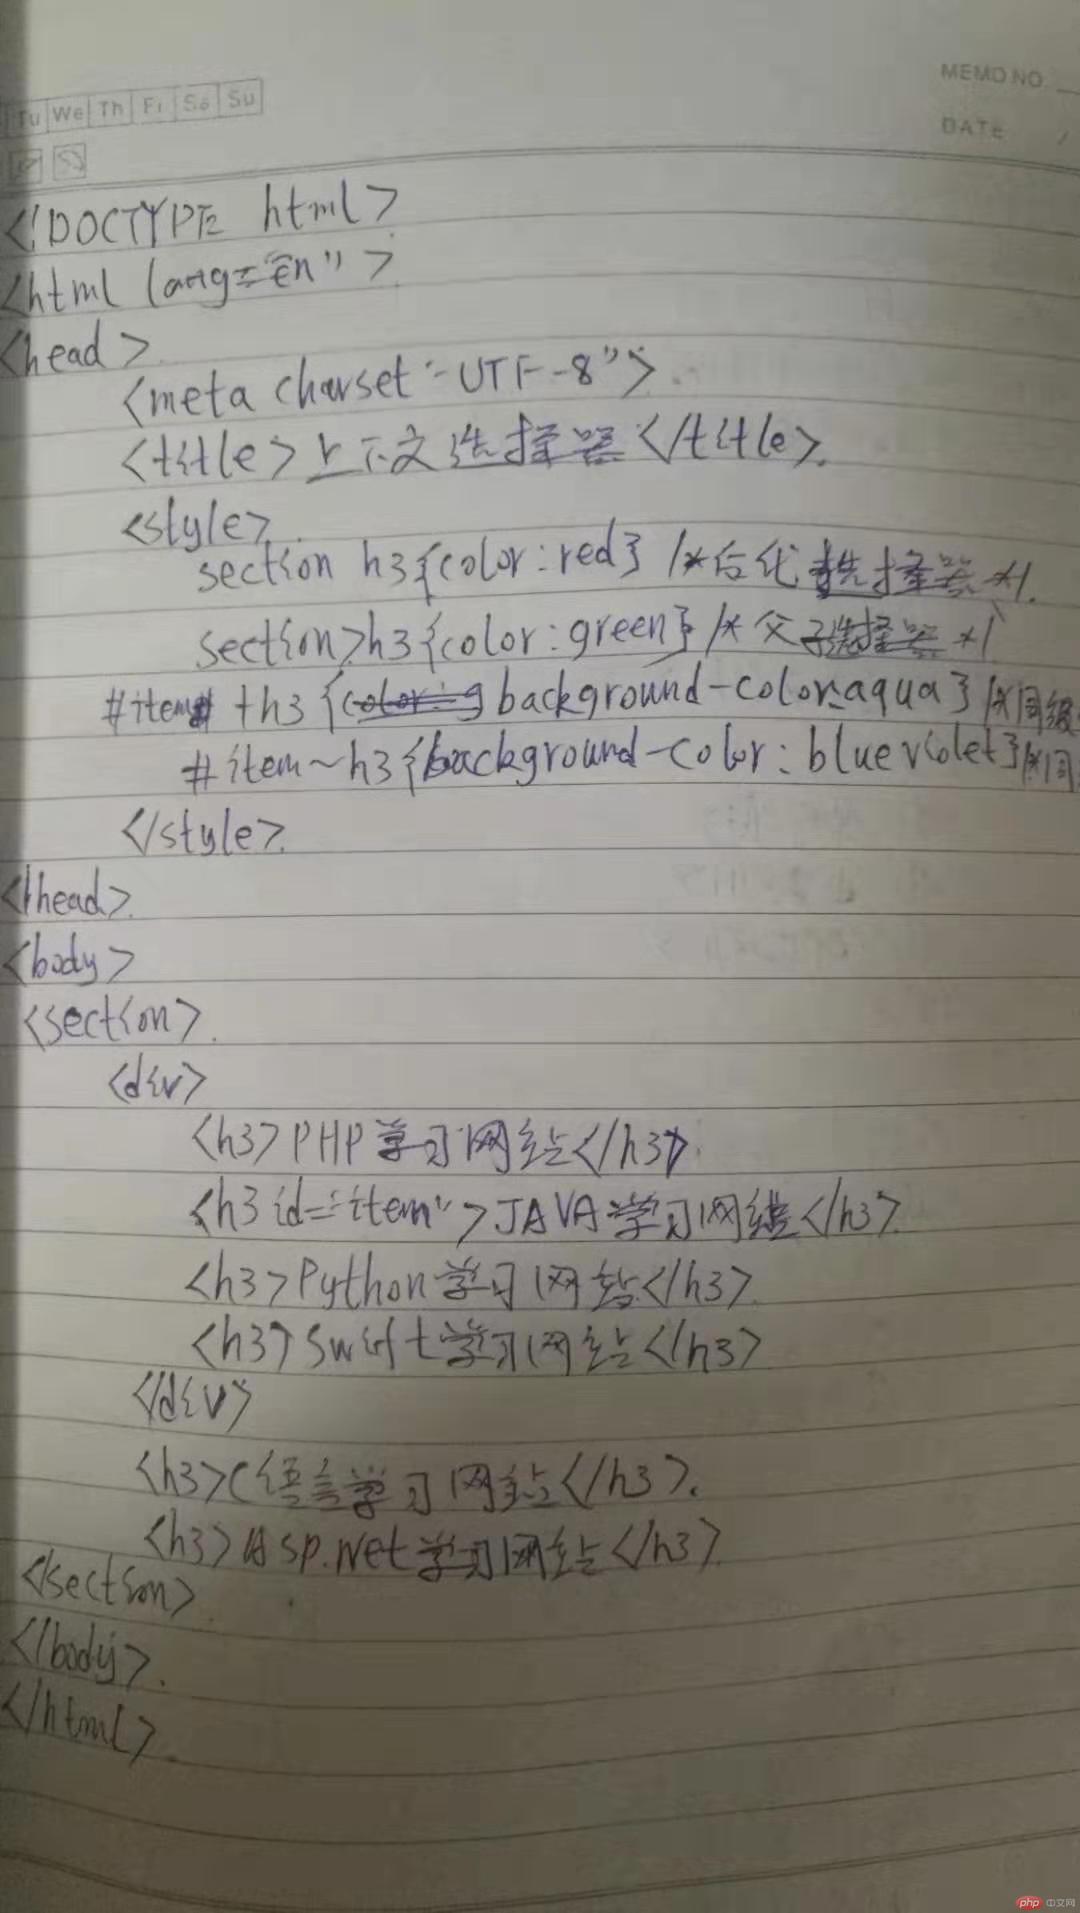 Tu We Th Fr Sa Su
MEMO NO.
DATE /
<!DOCTYPE html>
<html lang="en">
<head>
<meta charset="UTF-8">
<title>上下文选择器</title>
<style>
section h3{color:red} /*后代选择器*/
section>h3{color:green} /*父子选择器*/
#item +h3{background-color:aqua} /*同级
#item~h3{background-color:blueviolet} /*同
</style>
</head>
<body>
<section>
<div>
<h3>PHP学习网站</h3>
<h3 id="item">JAVA学习网站</h3>
<h3>Python学习网站</h3>
<h3>Swift学习网站</h3>
</div>
<h3>C语言学习网站</h3>
<h3>Asp.Net学习网站</h3>
</section>
</body>
</html>
php 中文网